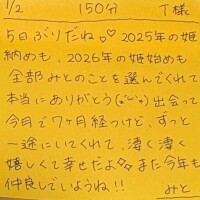 1/2 150分 T様
5日ぶりだね♡ 2025年の姫
納めも、2026年の姫始めも
全部みとのことを選んでくれて
本当にありがとう(*ˊᵕˋ*) 出会って
今月で7ヶ月経つけど、ずっと
一途にいてくれて、凄く凄く
嬉しくて幸せだよ♡ また今年も
仲良しでいようね!!
みと